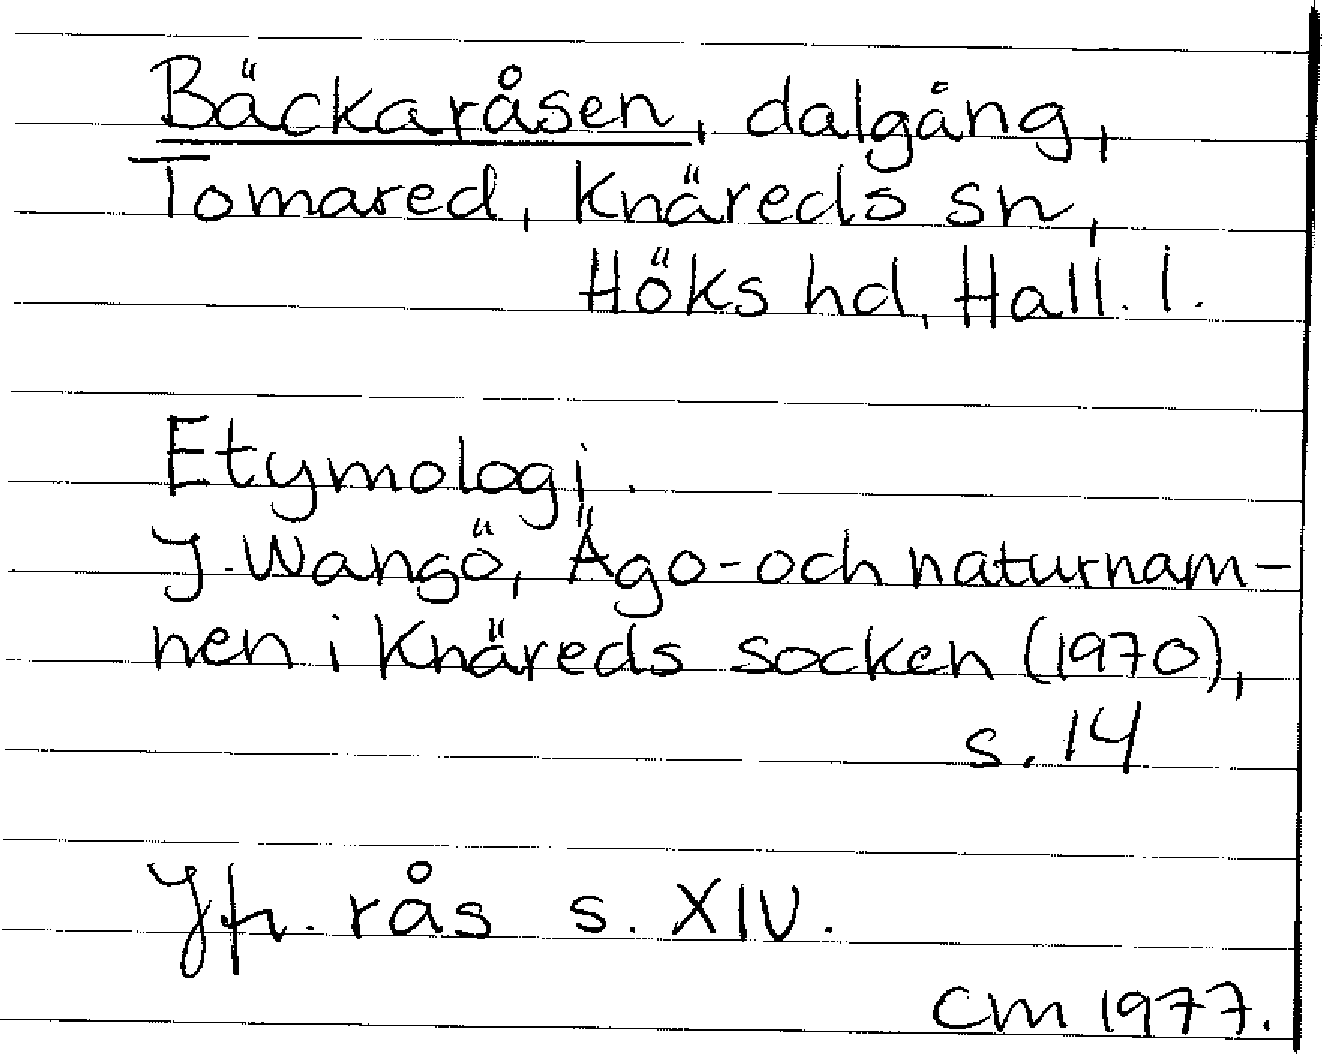 Bäckaråsen, dalgång,
Tomared, Knäreds sn,
Höks hd, Hall. l.
Etymologi.
J. Wangö, Ägo- och naturnam-
nen i Knäreds socken (1970),
s. 14
Jfr. rås s. XIV.
CM 1977.